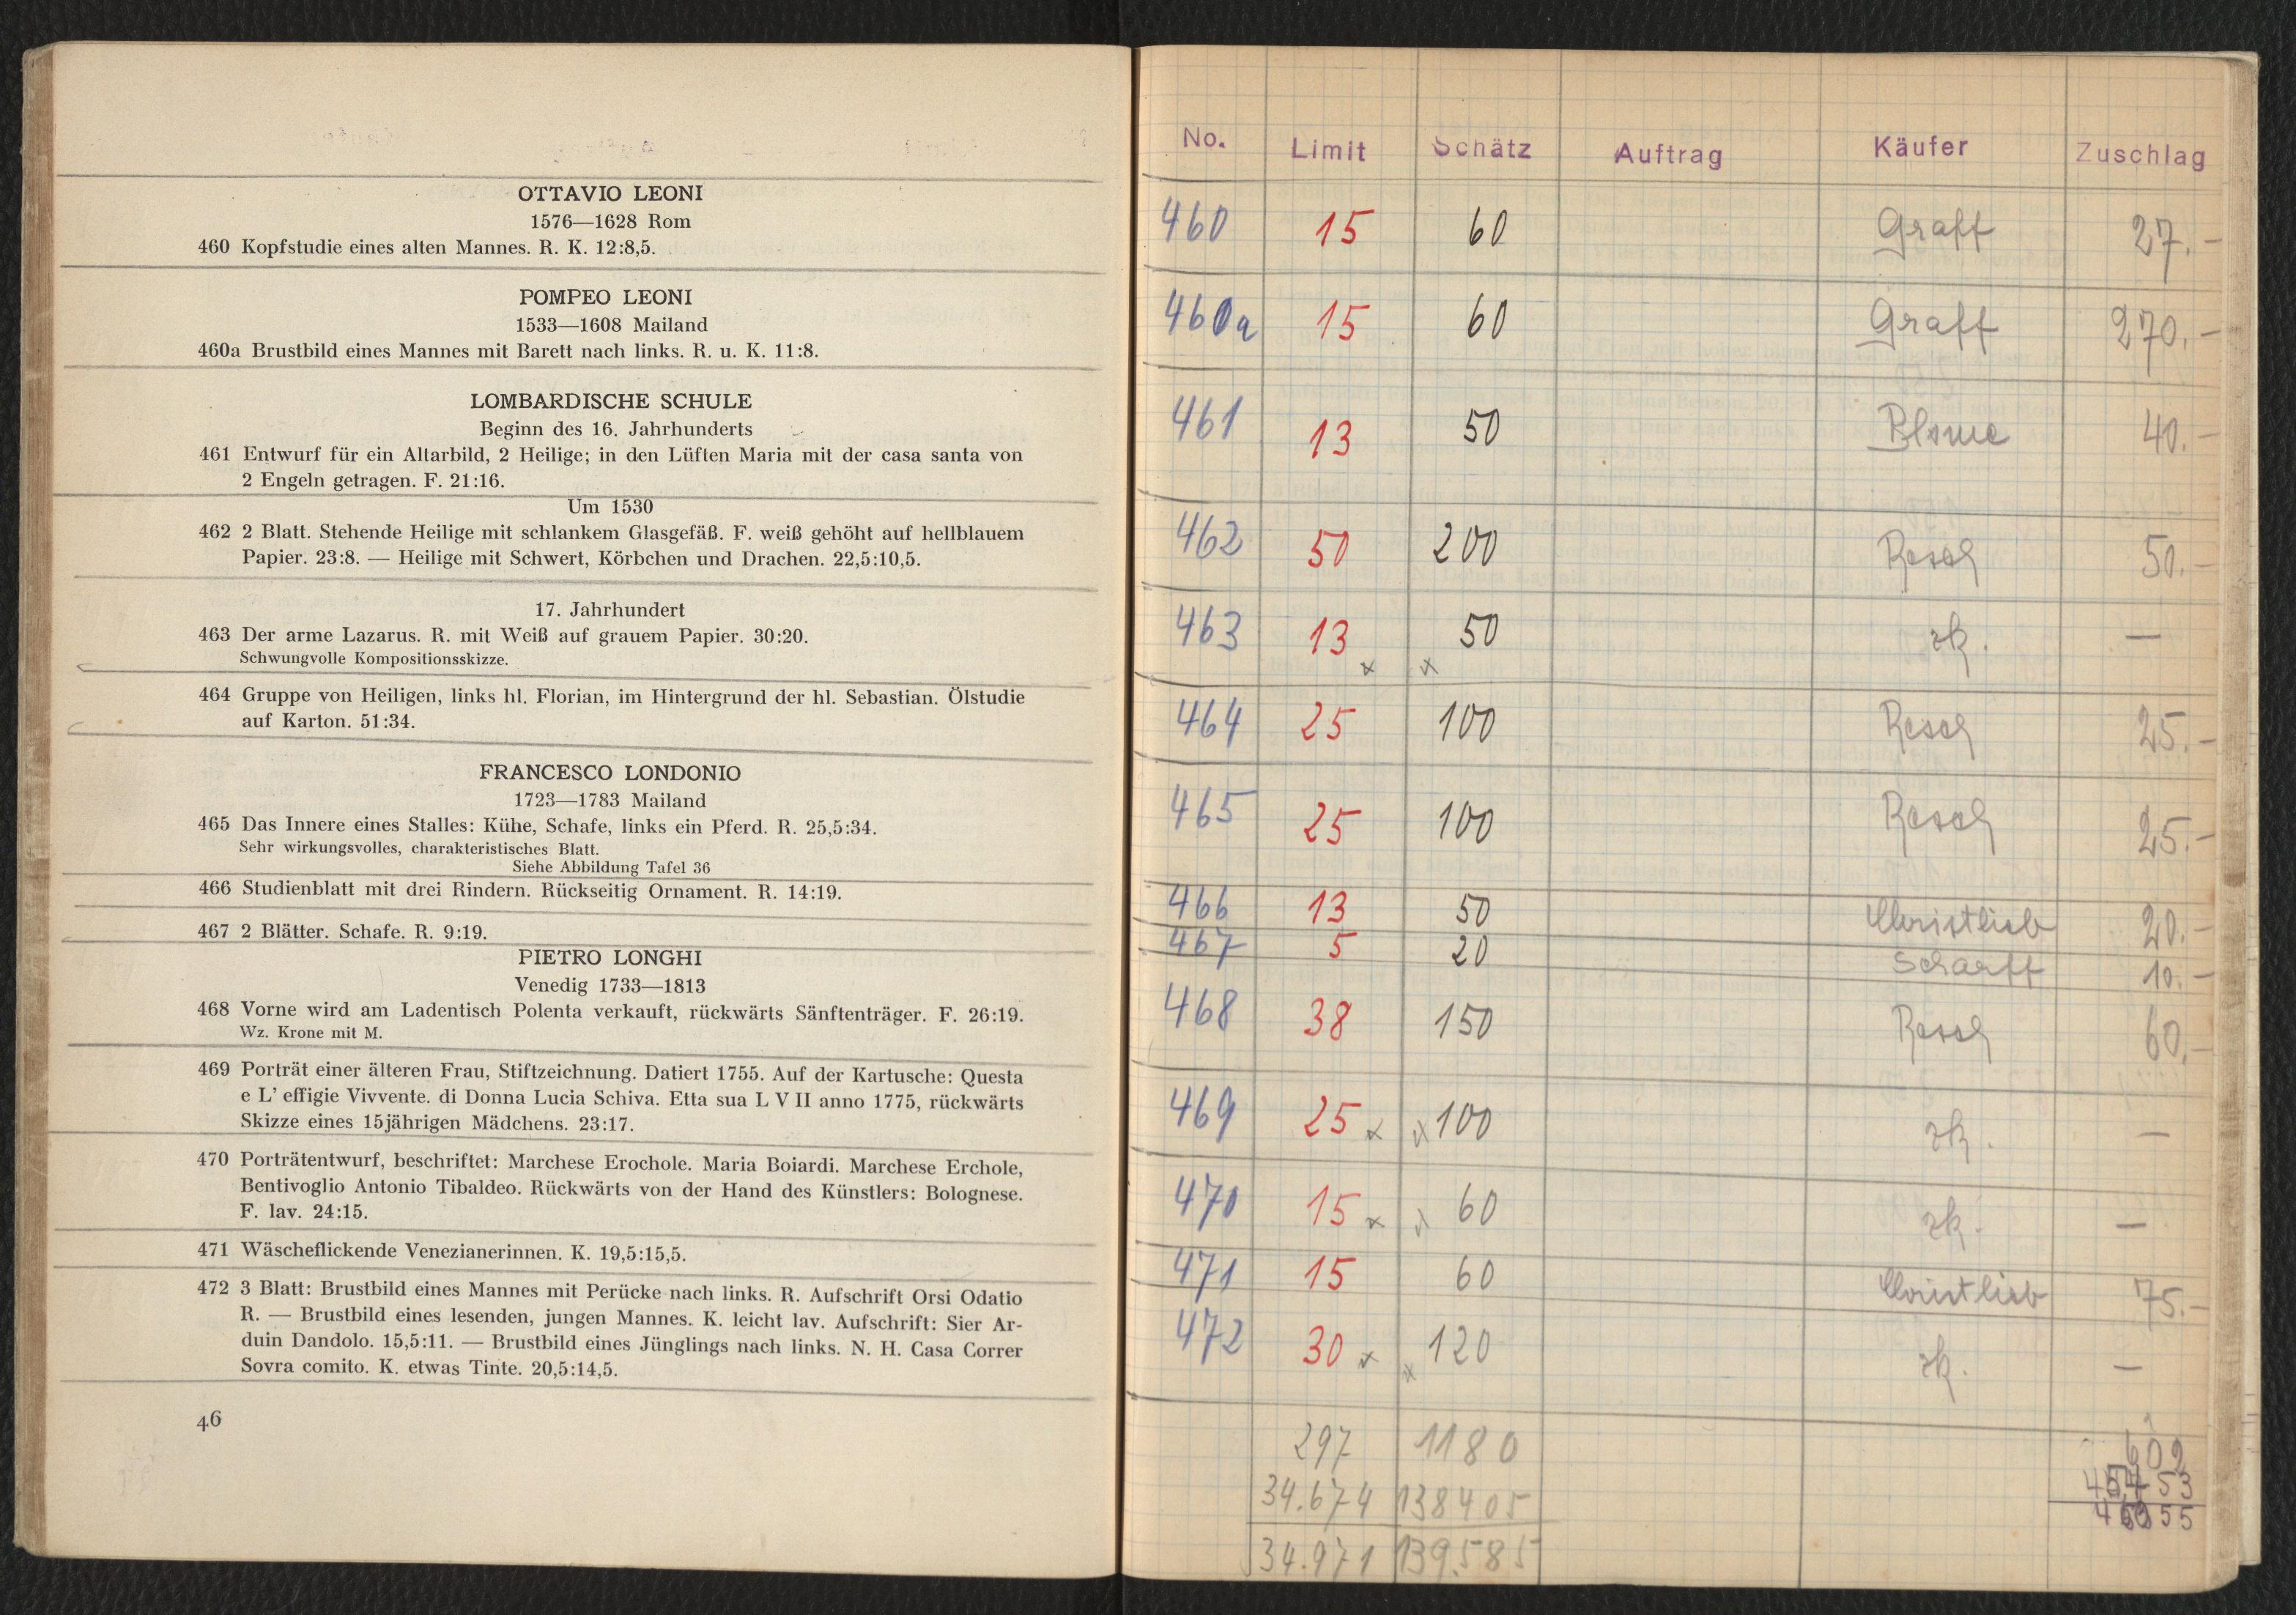 OTTAVIO LEONI
1576—1628 Rom
460 Kopfstudie eines alten Mannes. R. K. 12:8,5.
POMPEO LEONI
1533—1608 Mailand
460a Brustbild eines Mannes mit Barett nach links. R. u. K. 11:8.
LOMBARDISCHE SCHULE
Beginn des 16. Jahrhunderts
461 Entwurf für ein Altarbild, 2 Heilige; in den Lüften Maria mit der casa santa von
2 Engeln getragen. F. 21:16.
Um 1530
462 2 Blatt. Stehende Heilige mit schlankem Glasgefäß. F. weiß gehöht auf hellblauem
Papier. 23:8. — Heilige mit Schwert, Körbchen und Drachen. 22,5:10,5.
17. Jahrhundert
463 Der arme Lazarus. R. mit Weiß auf grauem Papier. 30:20.
Schwungvolle Kompositionsskizze.
464 Gruppe von Heiligen, links hl. Florian, im Hintergrund der hl. Sebastian. Ölstudie
auf Karton. 51:34.
FRANCESCO LONDONIO
1723—1783 Mailand
465 Das Innere eines Stalles: Kühe, Schafe, links ein Pferd. R. 25,5:34.
Sehr wirkungsvolles, charakteristisches Blatt.
Siehe Abbildung Tafel 36
466 Studienblatt mit drei Rindern. Rückseitig Ornament. R. 14:19.
467 2 Blätter. Schafe. R. 9:19.
PIETRO LONGHI
Venedig 1733—1813
468 Vorne wird am Ladentisch Polenta verkauft, rückwärts Sänftenträger. F. 26:19.
Wz. Krone mit M.
469 Porträt einer älteren Frau, Stiftzeichnung. Datiert 1755. Auf der Kartusche: Questa
e L' effigie Vivvente. di Donna Lucia Schiva. Etta sua L V II anno 1775, rückwärts
Skizze eines 15jährigen Mädchens. 23:17.
470 Porträtentwurf, beschriftet: Marchese Erochole. Maria Boiardi. Marchese Erchole,
Bentivoglio Antonio Tibaldeo. Rückwärts von der Hand des Künstlers: Bolognese.
F. lav. 24:15.
471 Wäscheflickende Venezianerinnen. K. 19,5:15,5.
472 3 Blatt: Brustbild eines Mannes mit Perücke nach links. R. Aufschrift Orsi Odatio
R. — Brustbild eines lesenden, jungen Mannes. K. leicht lav. Aufschrift: Sier Ar-
duin Dandolo. 15,5:11. — Brustbild eines Jünglings nach links. N. H. Casa Correr
Sovra comito. K. etwas Tinte. 20,5:14,5.
46
No. Limit Schätz Auftrag Käufer Zuschlag
460 15 60 Graff 27.-
460a 15 60 Graff 270.-
461 13 50 Blome 40.-
462 50 200 Resch 50.-
463 13 x x 50 zk. —
464 25 100 Resch 25.-
465 25 100 Resch 25.-
466 13 50 Christlieb 20.-
467 5 20 Scharff 10.-
468 38 150 Resch 60.-
469 25 x x 100 zk. —
470 15 x x 60 zk. —
471 15 60 Christlieb 75.-
472 30 x x 120 zk. —
297 1180 602
34.674 138405
34.971 139.585